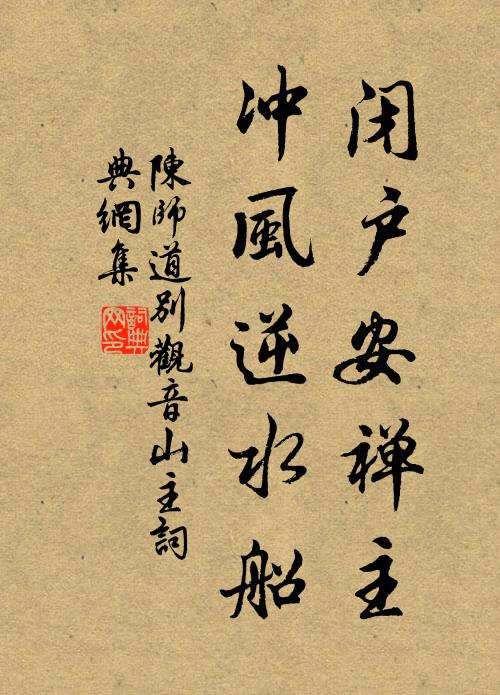 闭户安禅主
冲風逆水船
陳師道別觀音山主詞
典網集
詞典
网印